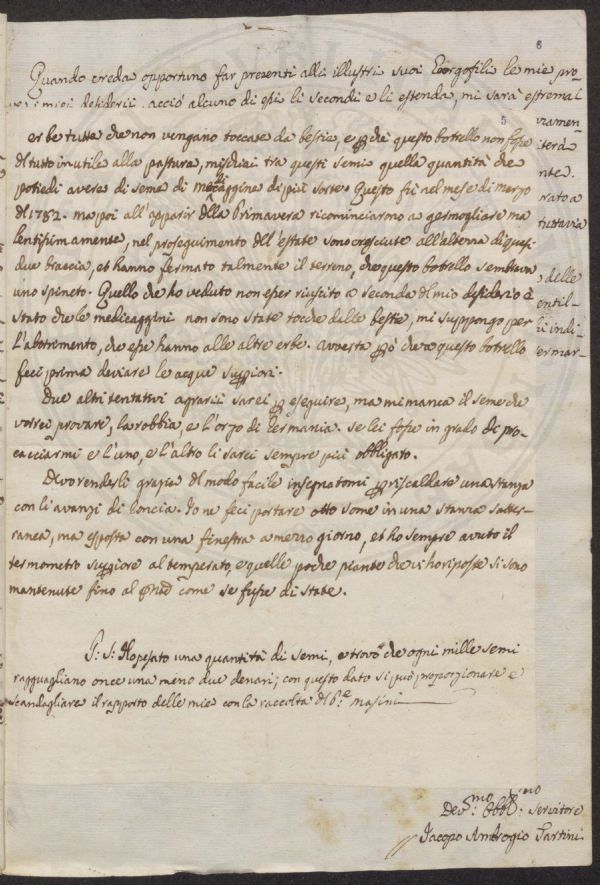 8
Quando creda opportuno far presenti alli illustri suoi Georgofili le mie pro-
miei desiderii acciò alcuno di essi li secondi e li estenda, mi sarà estremal
5
erbe tutte che non vengano toccate da bestie, e che questo botrello non fosse
del tutto inutile alla pastura, mischiai tra questi semi quella quantità che
potiedi avere di seme di medicaggine di più sorte. Questo fù nel mese di marzo
del 1782. ma poi all'apparir della Primavera ricominciarono a germogliare ma
lentissimamente, nel proseguimento dell'estate sono cresciute all'altezza di quasi
due braccia, et hanno fermato talmente il terreno, che questo botrello sembrava
uno spineto. Quello che ho veduto non esser riuscito a seconda del mio desiderio è
stato che le medicaggini non sono state tocche dalle bestie, mi suppongo per
l'abborrimento, che esse hanno alle altre erbe. avverta però che a questo botrello
feci prima deviare le acque superiori.
Due altri tentativi agrarii sarei per eseguire, ma mi manca il seme che
vorrei provare, la robbia, e l'orzo di Germania. Se lei fosse in grado di pro-
cacciarmi e l'uno, e l'altro li sarei sempre più obbligato.
Devo renderli grazie del modo facile insegnatomi per riscaldare una stanza
con li avanzi di concia. Io ne feci portare otto some in una stanza sotter-
ranea, ma esposta con una finestra a mezzo giorno, et ho sempre avuto il
termometro superiore al temperato, e quelle poche piante che vi ho riposte si sono
mantenute fino al come se fusse di state.
P: S: Ho pesato una quantità di semi, e trovo che ogni mille semi
ragguagliano once una meno due denari; con questo dato si può proporzionare e
scandagliare il rapporto delle mie con la raccolta del P.e masini
Dev.mo Obbl.mo Servitore
Jacopo Ambrogio Tartini